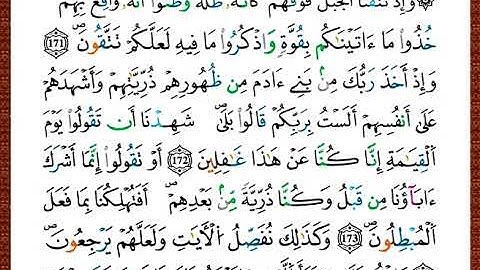 وَإِذْ نَتَقْنَا الْجَبَلَ فَوْقَهُمْ كَأَنَّهُۥ ظُلَّةٌ وَظَنُّوا أَنَّهُۥ وَاقِعٌۢ بِهِمْ
خُذُوا مَا ءَاتَيْنَٰكُم بِقُوَّةٍ وَاذْكُرُوا مَا فِيهِ لَعَلَّكُمْ تَتَّقُونَ ۖ (171)
وَإِذْ أَخَذَ رَبُّكَ مِنۢ بَنِي ءَادَمَ مِن ظُهُورِهِمْ ذُرِّيَّٰتِهِمْ وَأَشْهَدَهُمْ
عَلَىٰ أَنفُسِهِمْ أَلَسْتُ بِرَبِّكُمْ قَالُوا بَلَىٰ ۖ شَهِدْنَا أَن تَقُولُوا يَوْمَ
الْقِيَٰمَةِ إِنَّا كُنَّا عَنْ هَٰذَا غَٰفِلِينَ (172) أَوْ تَقُولُوا إِنَّمَا أَشْرَكَ
ءَابَآؤُنَا مِن قَبْلُ وَكُنَّا ذُرِّيَّةً مِّنۢ بَعْدِهِمْ ۖ أَفَتُهْلِكُنَا بِمَا فَعَلَ
الْمُبْطِلُونَ ۖ (173) وَكَذَٰلِكَ نُفَصِّلُ الْأٓيَٰتِ وَلَعَلَّهُمْ يَرْجِعُونَ ۖ